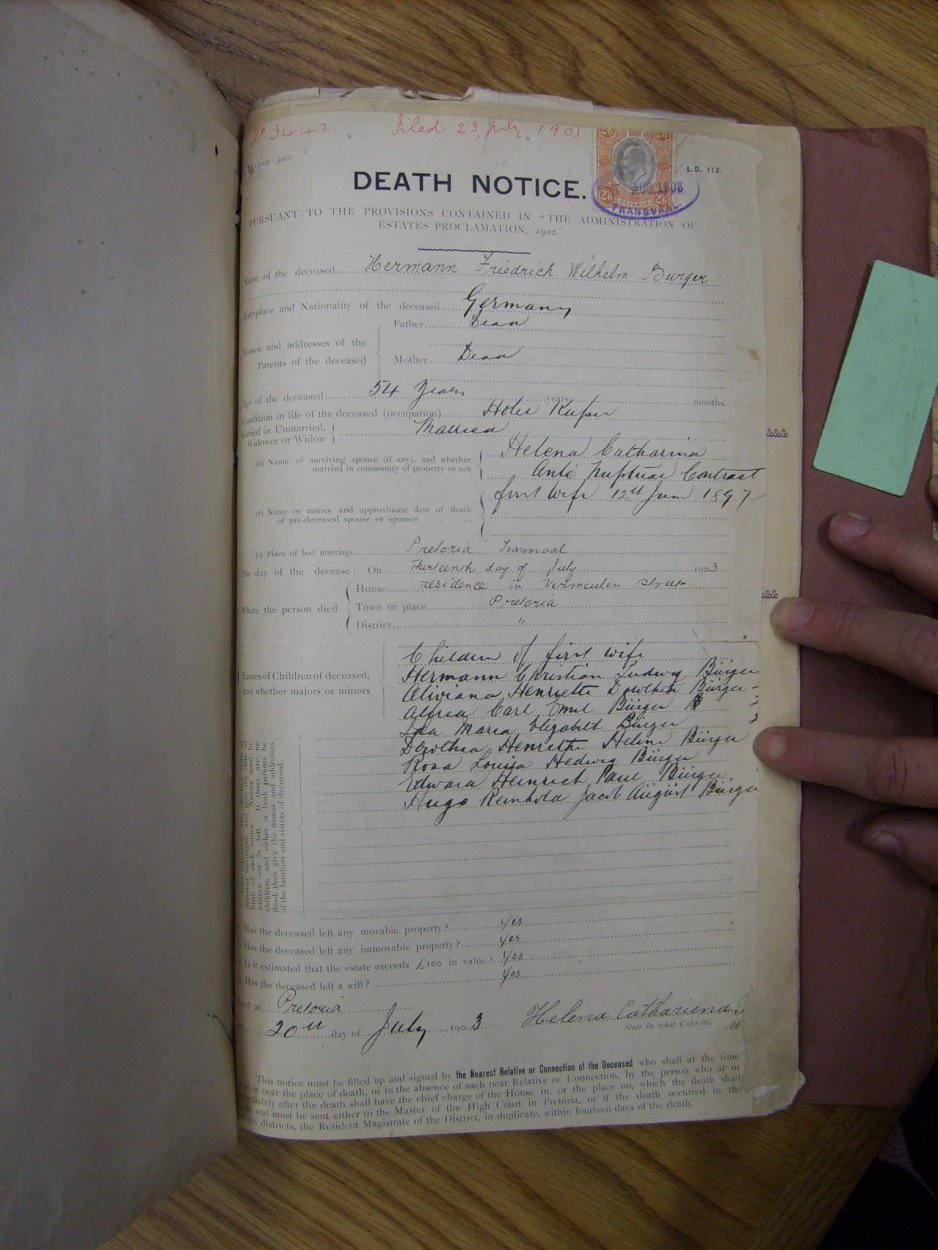 No 3442. Filed 23 July 1903
L.D. 112.
AUG 1903
TRANSVAAL
2/6 REVENUE 2/6
DEATH NOTICE.
PURSUANT TO THE PROVISIONS CONTAINED IN "THE ADMINISTRATION OF
ESTATES PROCLAMATION, 1902."
Name of the deceased Hermann Friedrich Wilhelm Burger
Birthplace and Nationality of the deceased Germany
Father Dead
Names and addresses of the
Parents of the deceased
Mother Dead
Age of the deceased 54 Years years months.
Condition in life of the deceased (occupation) Hotel Keeper
Married or Unmarried, Married
Widower or Widow
(a) Name of surviving spouse (if any), and whether Helena Catharina
married in community of property or not Anti Nuptial Contract
first wife 12th June 1897
(b) Name or names and approximate date of death
of pre-deceased spouse or spouses
(c) Place of last marriage Pretoria Transvaal
The day of the decease: On Thirteenth day of July 1903.
House residence in Vermeulen Street
Where the person died Town or place Pretoria
District "
Children of first wife
Names of Children of deceased, Hermann Christian Ludwig Bürger
and whether majors or minors Oliviana Henriette Dorthea Bürger
Alfred Carl Emil Bürger
Ida Maria Elizabet Bürger
Dorothea Henriette Helene Bürger
Rosa Louisa Hedwig Bürger
Edward Heinrich Paul Bürger
Hugo Reinhold Jacob August Bürger
written out in full. If there are no
children, and either or both parents be
dead, then give the names and addresses
of the brothers and sisters of deceased.
Has the deceased left any movable property? yes
Has the deceased left any immovable property? yes
Is it estimated that the estate exceeds £100 in value? yes
Has the deceased left a will? yes
at Pretoria
20th day of July 1903. Helena Cathariena
State in what Capacity.
This notice must be filled up and signed by the Nearest Relative or Connection of the Deceased who shall at the time
or near the place of death, or in the absence of such near Relative or Connection, by the person who at or
immediately after the death shall have the chief charge of the House in, or the place on, which the death shall
and must be sent either to the Master of the High Court in Pretoria, or if the death occurred in the
districts, the Resident Magistrate of the District, in duplicate, within fourteen days of the death.